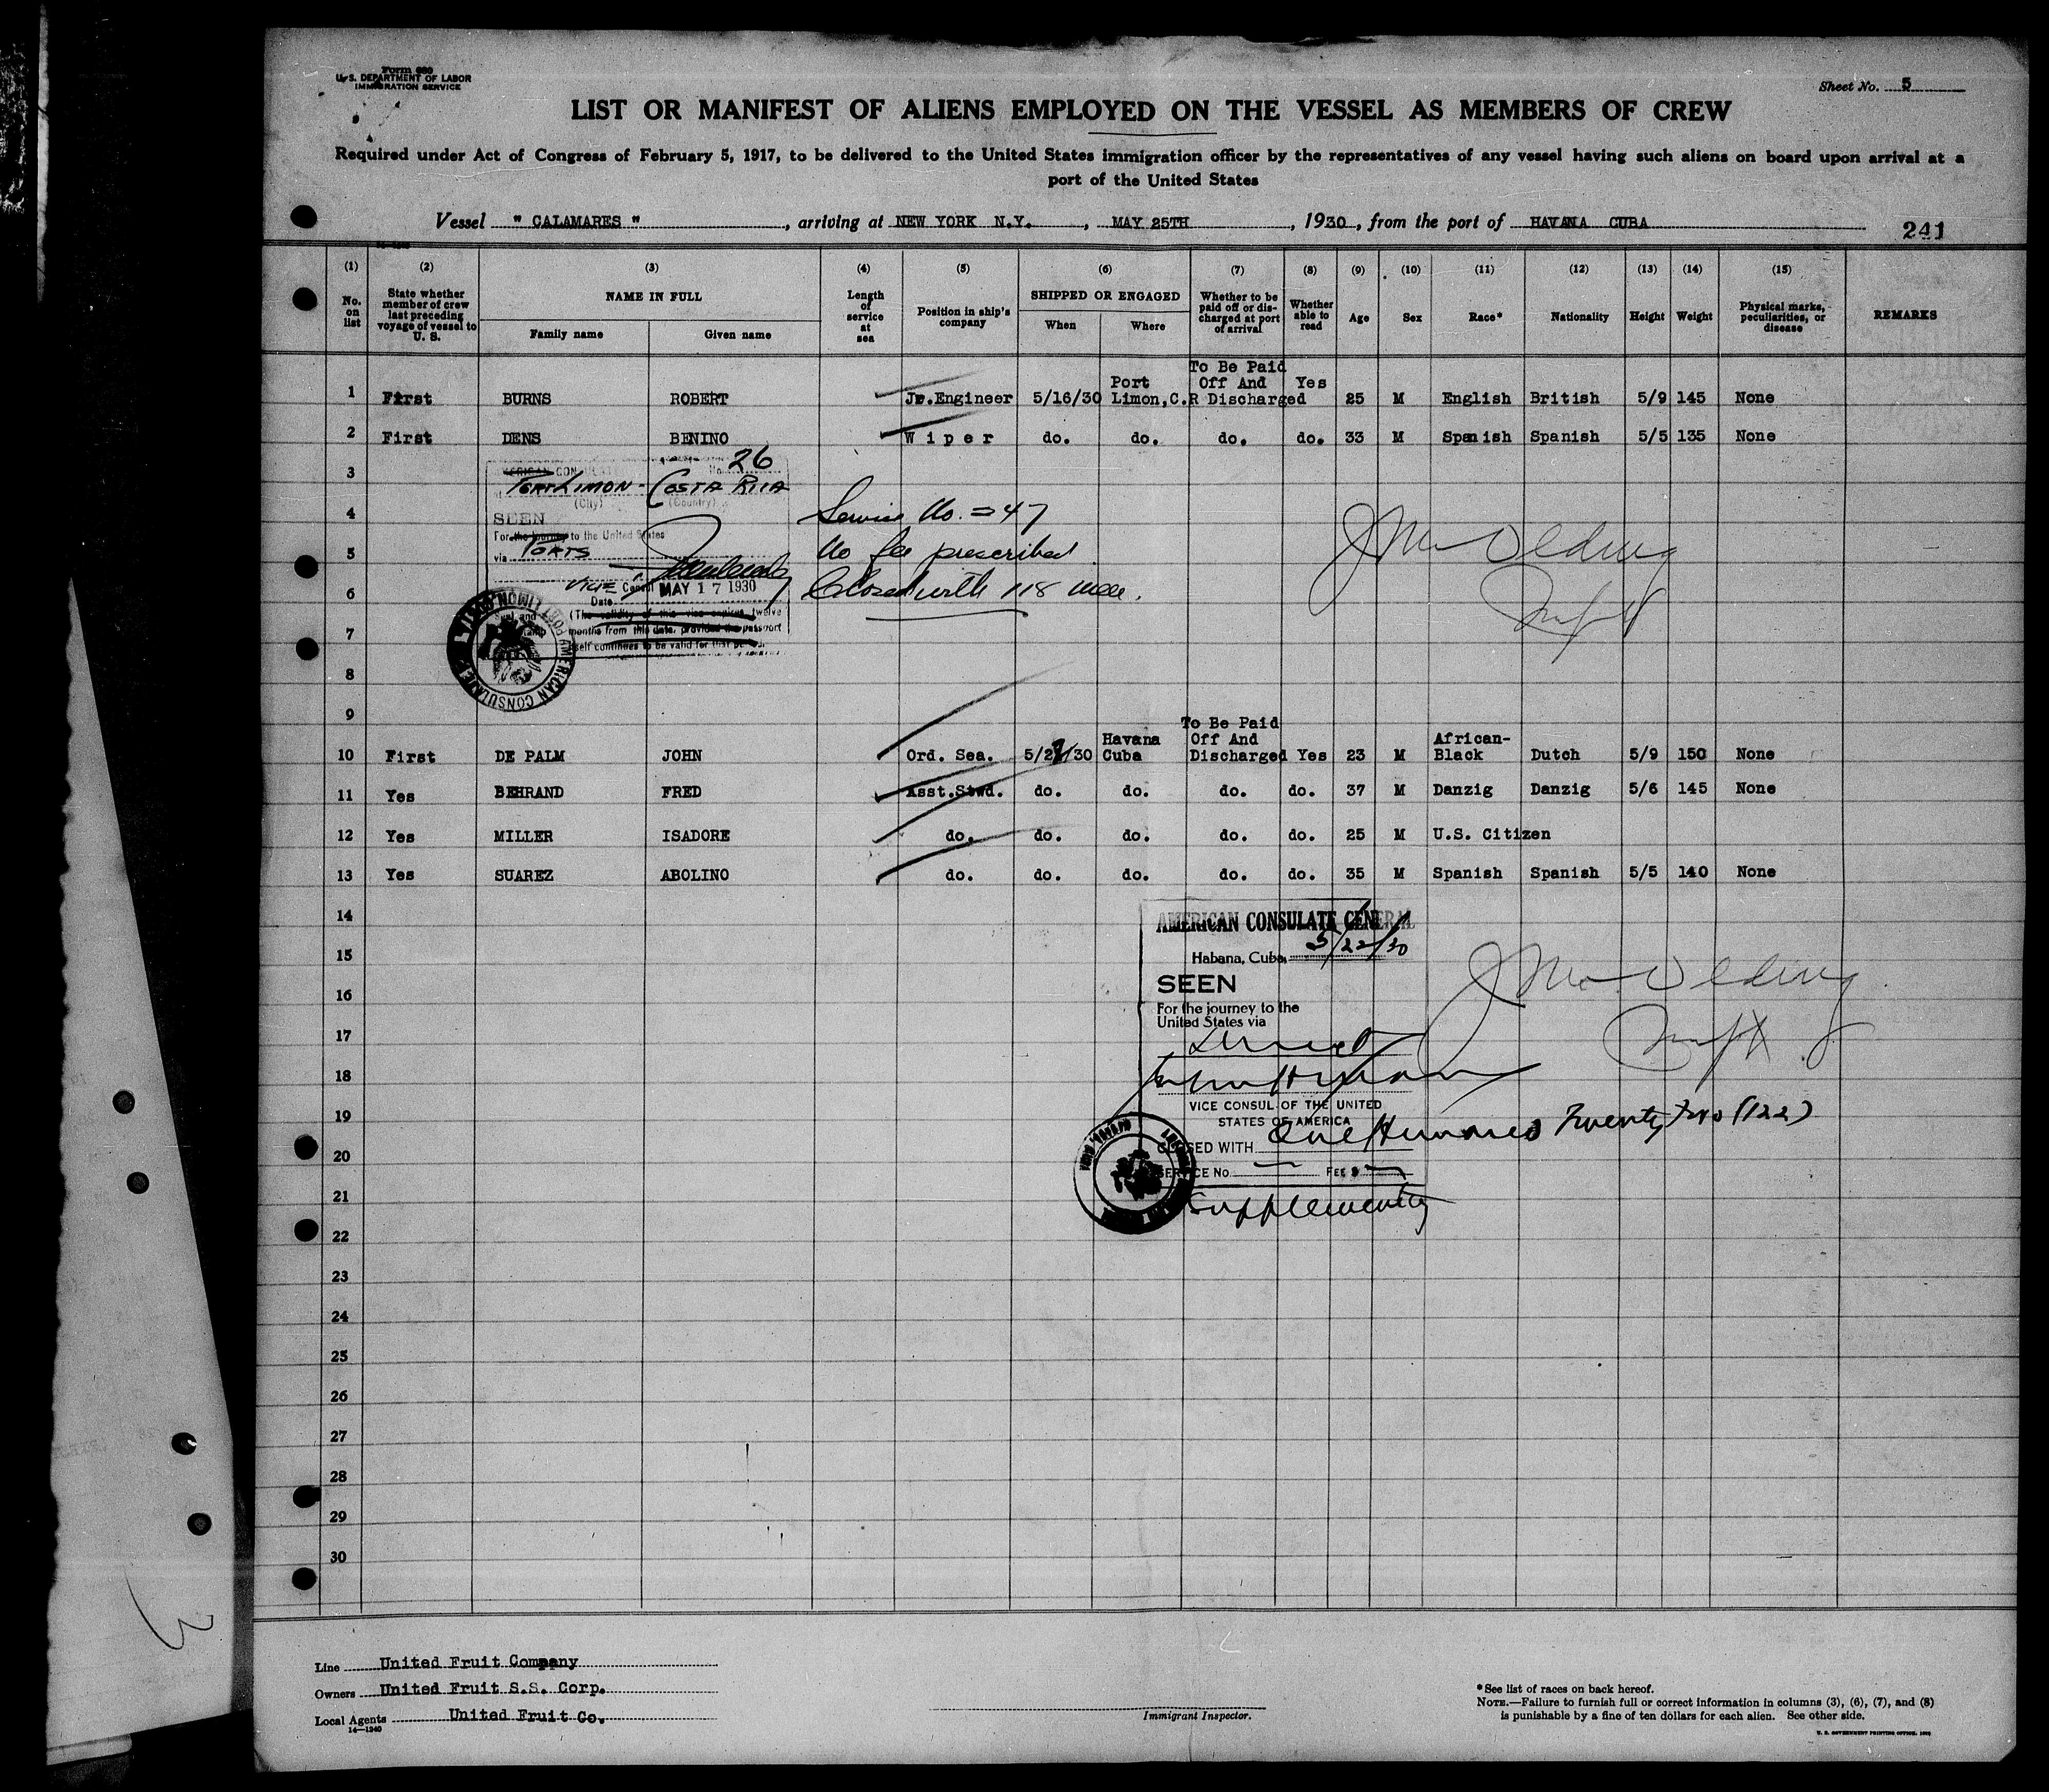 Form 680
U. S. DEPARTMENT OF LABOR
IMMIGRATION SERVICE
Sheet No. 5
LIST OR MANIFEST OF ALIENS EMPLOYED ON THE VESSEL AS MEMBERS OF CREW
Required under Act of Congress of February 5, 1917, to be delivered to the United States immigration officer by the representatives of any vessel having such aliens on board upon arrival at a
port of the United States
Vessel " CALAMARES ", arriving at NEW YORK N.Y., MAY 25TH, 1930, from the port of HAVANA CUBA
241
(1) (2) (3) (4) (5) (6) (7) (8) (9) (10) (11) (12) (13) (14) (15)
No. on list
State whether member of crew last preceding voyage of vessel to U. S.
NAME IN FULL
Family name Given name
Length of service at sea
Position in ship's company
SHIPPED OR ENGAGED
When Where
Whether to be paid off or discharged at port of arrival
Whether able to read
Age Sex Race* Nationality Height Weight
Physical marks, peculiarities, or disease
REMARKS
1 First BURNS ROBERT Jr.Engineer 5/16/30 Port Limon,C.R To Be Paid Off And Discharged Yes 25 M English British 5/9 145 None
2 First DENS BENINO Wiper do. do. do. do. 33 M Spanish Spanish 5/5 135 None
3
AMERICAN CON
No. 26
PORT LIMON - COSTA RICA
(City) (Country)
4
SEEN
Service No. = 47
For the journey to the United States
5
via PORTS
No fee prescribed
6
VICE Consul
Closed with 118 men.
Date MAY 17 1930
(The validity of this visa expires twelve
months from this date, provided the passport
self continues to be valid for that period.
7
AMERICAN CONSULATE PORT LIMON, COSTA
8
9
10 First DE PALM JOHN Ord. Sea. 5/22/30 Havana Cuba To Be Paid Off And Discharged Yes 23 M African-Black Dutch 5/9 150 None
11 Yes BEHRAND FRED Asst.Stwd. do. do. do. do. 37 M Danzig Danzig 5/6 145 None
12 Yes MILLER ISADORE do. do. do. do. do. 25 M U.S. Citizen
13 Yes SUAREZ ABOLINO do. do. do. do. do. 35 M Spanish Spanish 5/5 140 None
14
AMERICAN CONSULATE GENERAL
15
Habana, Cuba, 5/22/30
16
SEEN
For the journey to the
United States via
17
18
VICE CONSUL OF THE UNITED
STATES OF AMERICA
19
CLOSED WITH One Hundred Twenty two (122)
20
SERVICE No. FEE $
21
Supplementary
22
23
24
25
26
27
28
29
30
Line United Fruit Company
Owners United Fruit S.S. Corp.
Local Agents United Fruit Co.
14—1240
Immigrant Inspector.
*See list of races on back hereof.
NOTE.—Failure to furnish full or correct information in columns (3), (6), (7), and (8)
is punishable by a fine of ten dollars for each alien. See other side.
3